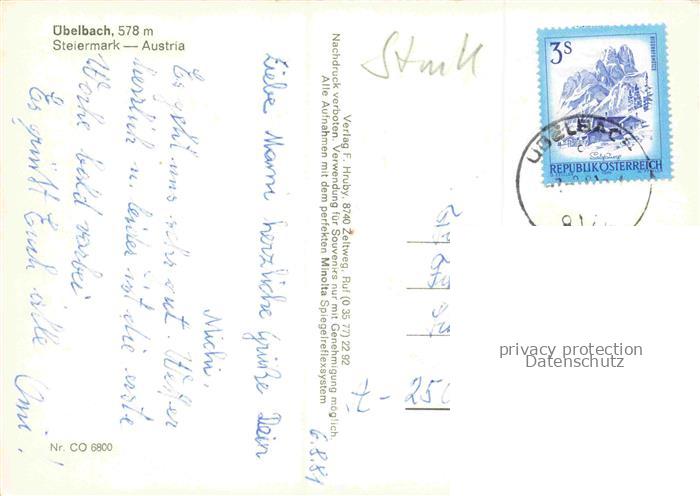 Übelbach, 578 m
Steiermark — Austria
Liebe Mami herzliche Grüße Dein
Michi,
Es geht uns sehr gut. Wetter
herrlich u. leider ist die erste
Woche bald vorbei
Es grüßt Euch alle Omi!
Nr. CO 6800
Verlag F. Hruby, 8740 Zeltweg, Ruf (0 35 77) 22 92
Nachdruck verboten. Verwendung für Souvenirs nur mit Genehmigung möglich.
Alle Aufnahmen mit dem perfekten Minolta Spiegelreflexsystem
6.8.81
3S
REPUBLIK ÖSTERREICH
ÜBELBACH
privacy protection
Datenschutz